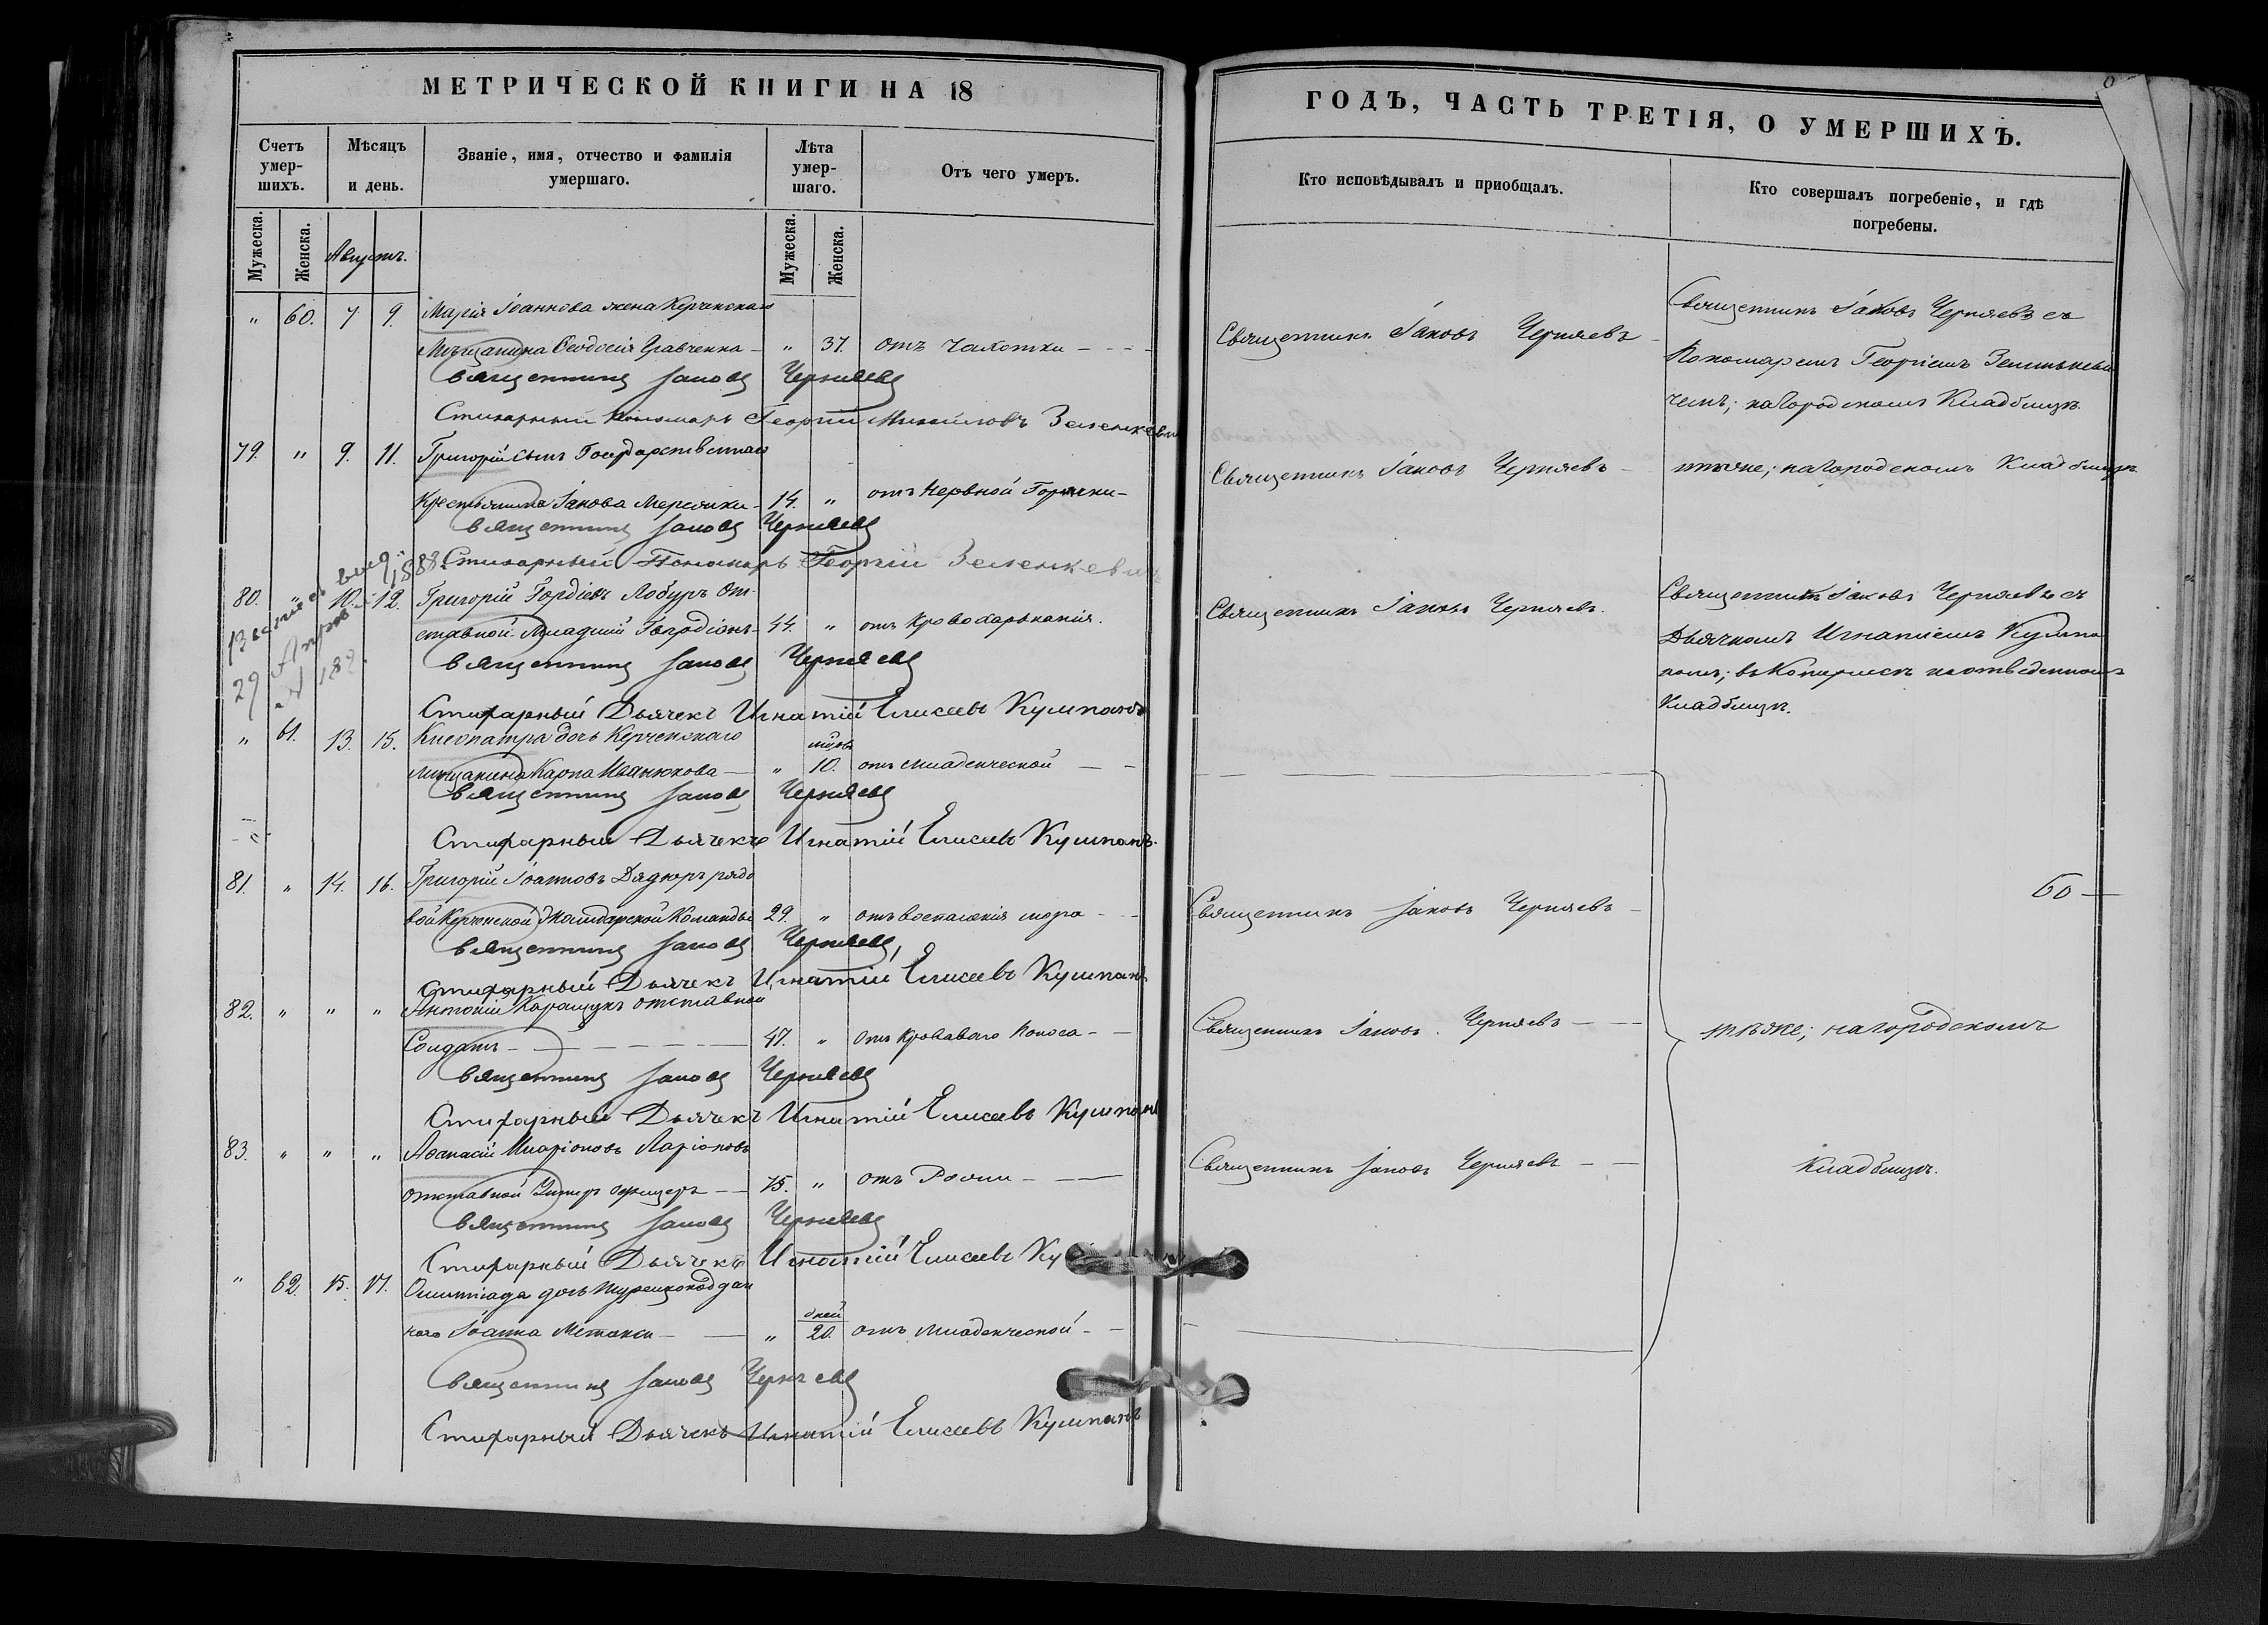 МЕТРИЧЕСКОЙ КНИГИ НА 18
ГОДЪ, ЧАСТЬ ТРЕТІЯ, О УМЕРШИХЪ.
Счетъ умер-шихъ.
Мѣсяцъ и день.
Званіе, имя, отчество и фамилія умершаго.
Лѣта умер-шаго.
Отъ чего умеръ.
Кто исповѣдывалъ и приобщалъ.
Кто совершалъ погребеніе, и гдѣ погребены.
Мужеска.
Женска.
Августъ.
Мужеска.
Женска.
" 60. 7 9. Марія Іоаннова жена Керченскаго
Мѣщанина Ѳеодосія Кравченка - " 37. отъ Чахотки - - -
Священникъ Іаковъ Черняевъ
Священникъ Іаковъ Черняевъ съ
Пономаремъ Георгіемъ Зеленкеви
чемъ; на Городскомъ Кладбищѣ.
Священникъ Іаковъ Черняевъ
Стихарный Пономарь Георгій Михайловъ Зеленкевичъ
79. " 9. 11. Григорій сынъ Государственнаго
Крестьянина Іакова - 14. " отъ Нервной Горячки -
Священникъ Іаковъ Черняевъ -
тѣже; на Городскомъ Кладбищѣ
Священникъ Іаковъ Черняевъ
Стихарный Пономарь Георгій Зеленкевичъ
80. " 10. 12. Григорій Гордіевъ Лобуръ От-
ставной Младшій - 44. " отъ Кровохарканія.
Священникъ Іаковъ Черняевъ.
Священникъ Іаковъ Черняевъ съ
Дьячкомъ Игнатіемъ Кулпа
номъ; въ на отведенномъ
Кладбищѣ.
Священникъ Іаковъ Черняевъ
29 1882.
Стихарный Дьячекъ Игнатій Елисеевъ Кулпанъ
" 61. 13. 15. Клеопатра дочь Керченскаго
мѣщанина Карпа Иванюкова - " 10. отъ младенческой - -
Священникъ Іаковъ Черняевъ
Стихарный Дьячекъ Игнатій Елисеевъ Кулпанъ.
81. " 14. 16. Григорій Іоанновъ Дядюръ рядо
вой Керченской Жандармской Команды 29. " отъ воспаленія - -
Священникъ Іаковъ Черняевъ -
Священникъ Іаковъ Черняевъ,
Стихарный Дьячекъ Игнатій Елисеевъ Кулпанъ
82. " " " Антоній Каращукъ отставной
Солдатъ - 47. " отъ Кроваваго Поноса - -
Священникъ Іаковъ Черняевъ - -
тѣже; на городскомъ
Священникъ Іаковъ Черняевъ
Стихарный Дьячекъ Игнатій Елисеевъ Кулпанъ
83. " " " Аѳанасій Иларіоновъ Ларіоновъ
отставной Унтеръ офицеръ - - 75. " отъ Рвоты - -
Священникъ Іаковъ Черняевъ - -
Кладбищѣ.
Священникъ Іаковъ Черняевъ
Стихарный Дьячекъ Игнатій Елисеевъ Ку
" 62. 15. 17. Олимпіада дочь турецкоподдан
наго Іоанна Метакси - - " дней 20. отъ младенческой - -
Священникъ Іаковъ Черняевъ
Стихарный Дьячекъ Игнатій Елисеевъ Кулпанъ